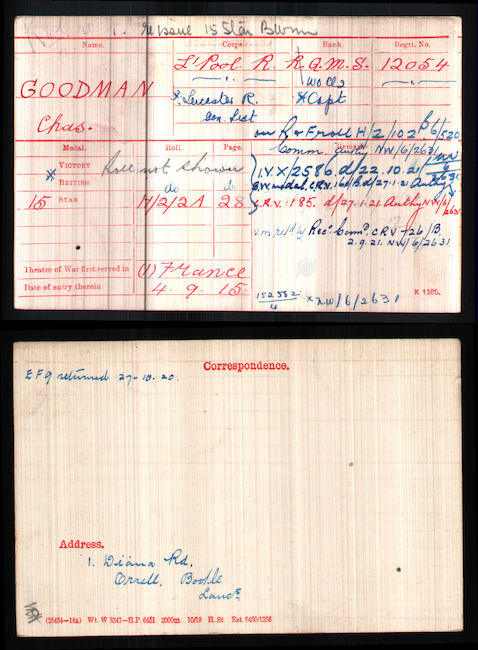 1. re issue 15 Star
Name. Corps. Rank. Regtl. No.
GOODMAN L'Pool R. R.Q.M.S. 12054
Chas. " WO Cl 2 "
x Leicester R. x Capt
Gen. List
on R & F roll H/2/102
Medal. Roll. Page. Remarks.
Comm. NW/6/2631
VICTORY Roll not shown I.V. X/2586 d/22.10.21
x
BRITISH do do d/27.1.21
15 STAR H/2/2A 28 C.R.V. 185. d/27.1.21 NW/6/2631
v.m. ret'd by Rec. Comm. CRV 26/B
2.9.21. NW/6/2631
Theatre of War first served in (1) France
Date of entry therein 4. 9. 15.
152582/4 x NW/6/2631 K 1380.
Correspondence.
EF9 returned 27-10-20.
Address.
1. Diana Rd.
Orrell, Bootle
Lancs
(25434—14A) Wt. W 3347—H.P. 6451 2000m 10/19 H. St. Est 6450/1256